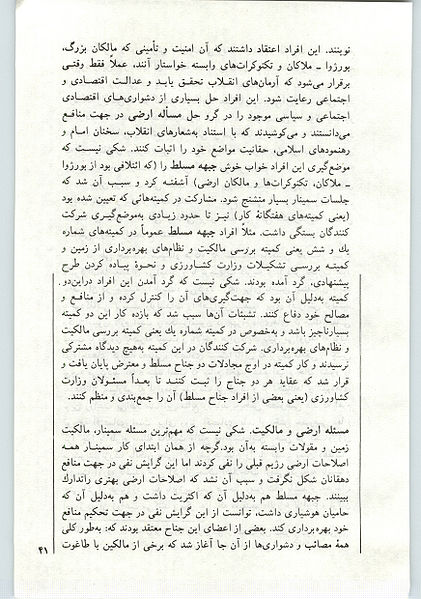 نویسند. این افراد اعتقاد داشتند که آن امنیت و تأمینی که مالکان بزرگ،
بورژوا ـ ملاکان و تکنوکرات‌های وابسته خواستار آنند، عملاً فقط وقتی
برقرار می‌شود که آرمان‌های انقلاب تحقق یابد و عدالت اقتصادی و
اجتماعی رعایت شود. این افراد حل بسیاری از دشواری‌های اقتصادی
اجتماعی و سیاسی موجود را در گرو حل مسأله ارضی در جهت منافع
می‌دانستند و می‌کوشیدند که با استناد به‌شعارهای انقلاب، سخنان امام و
رهنمودهای اسلامی، حقانیت مواضع خود را اثبات کنند. شکی نیست که
موضع‌گیری این افراد خواب خوش جبهه مسلط را (که ائتلافی بود از بورژوا
ـ ملاکان، تکنوکرات‌ها و مالکان ارضی) آشفته کرد و سبب آن شد که
جلسات سمینار بسیار متشنج شود. مشارکت در کمیته‌هائی که تعیین شده بود
(یعنی کمیته‌های هفتگانهٔ کار) نیز تا حدود زیادی به‌موضع‌گیری شرکت
کنندگان بستگی داشت. مثلاً افراد جبهه مسلط عموماً در کمیته‌های شماره
یك و شش یعنی کمیته بررسی مالکیت و نظام‌های بهره‌برداری از زمین و
کمیته بررسی تشکیلات وزارت کشاورزی و نحوهٔ پیاده کردن طرح
پیشنهادی، گرد آمده بودند. شکی نیست که گرد آمدن این افراد دراین‌دو
کمیته به‌دلیل آن بود که جهت‌گیری‌های آن را کنترل کرده و از منافع و
مصالح خود دفاع کنند. تشبثات آن‌ها سبب شد که بازده کار این دو کمیته
بسیارناچیز باشد و به‌خصوص در کمیته شماره یك یعنی کمیته بررسی مالکیت
و نظام‌های بهره‌برداری. شرکت کنندگان در این کمیته به‌هیچ دیدگاه مشترکی
نرسیدند و کار کمیته در اوج مجادلات دو جناح مسلط و معترض پایان یافت و
قرار شد که عقاید هر دو جناح را ثبت کنند تا بعداً مسئولان وزارت
کشاورزی (یعنی بعضی از افراد جناح مسلط) آن را جمع‌بندی و منظم کنند.
مسئله ارضی و مالکیت. شکی نیست که مهم‌ترین مسئله سمینار، مالکیت
زمین و مقولات وابسته به‌آن بود.گرچه از همان ابتدای کار سمینار همه
اصلاحات ارضی رژیم قبلی را نفی کردند اما این گرایش نفی در جهت منافع
دهقانان شکل نگرفت و سبب آن نشد که اصلاحات ارضی بهتری راتدارك
ببینند. جبهه مسلط هم به‌دلیل آن که اکثریت داشت و هم به‌دلیل آن که
حامیان هوشیاری داشت، توانست از این گرایش نفی در جهت تحکیم منافع
خود بهره‌برداری کند. بعضی از اعضای این جناح معتقد بودند که: به‌طور کلی
همهٔ مصائب و دشواری‌ها از آن جا آغاز شد که برخی از مالکین با طاغوت
۴۱